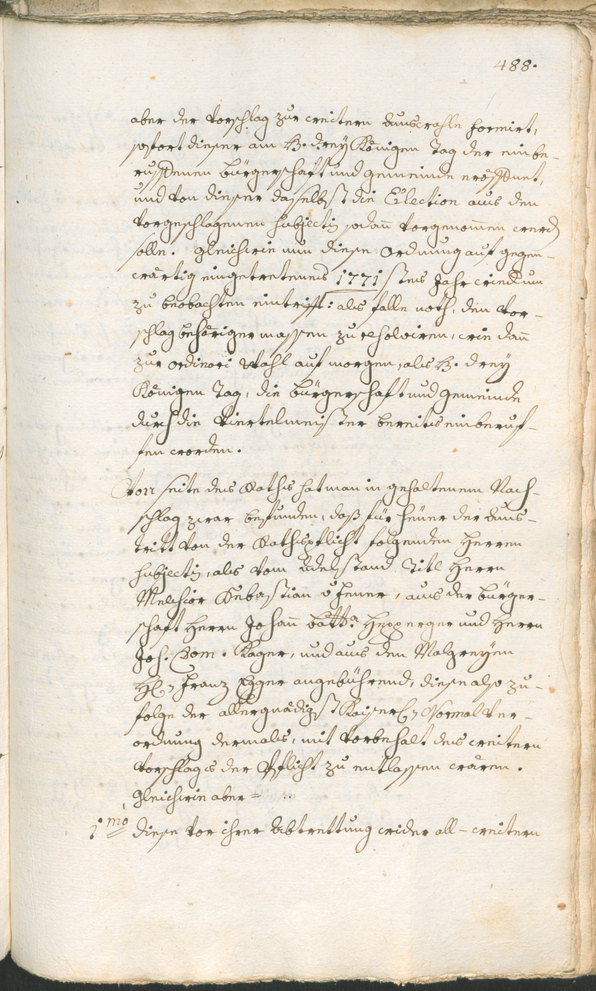 488.
aber der Vorschlag zur weitern Auswahle formirt,
sofort dieser am H. drey Königen Tag der einbe-
ruffenen Bürgerschaft und gemeinde eröffnet,
und von dieser daselbst die Election aus den
vorgeschlagenen Subjectis sodan vorgenommen werden
solle. gleichwie nun diese Ordnung auf gegen-
wärtig eingetretenes 1771stens Jahr wiederum
zu beobachten eintrifft: als falle noth, den Vor-
schlag behöriger massen zu resolviren, wie dan
zur ordinari Wahl auf morgen, als H. drey
Königen Tag, die Bürgerschaft und gemeinde
durch die Viertelmeister bereits einberuf-
fen worden.
Von seite des Raths hat man in gehaltenem Nach-
schlag zwar befunden, daß für heuer der Aus-
tritt von der Rathspflicht folgenden Herren
Subjectis, als vom Adelstand Titl Herrn
Melchior Sebastian v Jenner, aus der Bürger-
schaft Herrn Johan Batta Hepperger und Herrn
Joh. Com. Kager, und aus den Malgreyen
H: Franz Egger angebührend, diese also zu-
folge der allergnädigst Kayserl: Normal Ver-
ordnung dermals, mit Vorbehalt des weitern
Vorschlags der Pflicht zu entlassen wären.
Gleichwie aber
1mo diese vor ihrer Abtrettung wider all-weitern